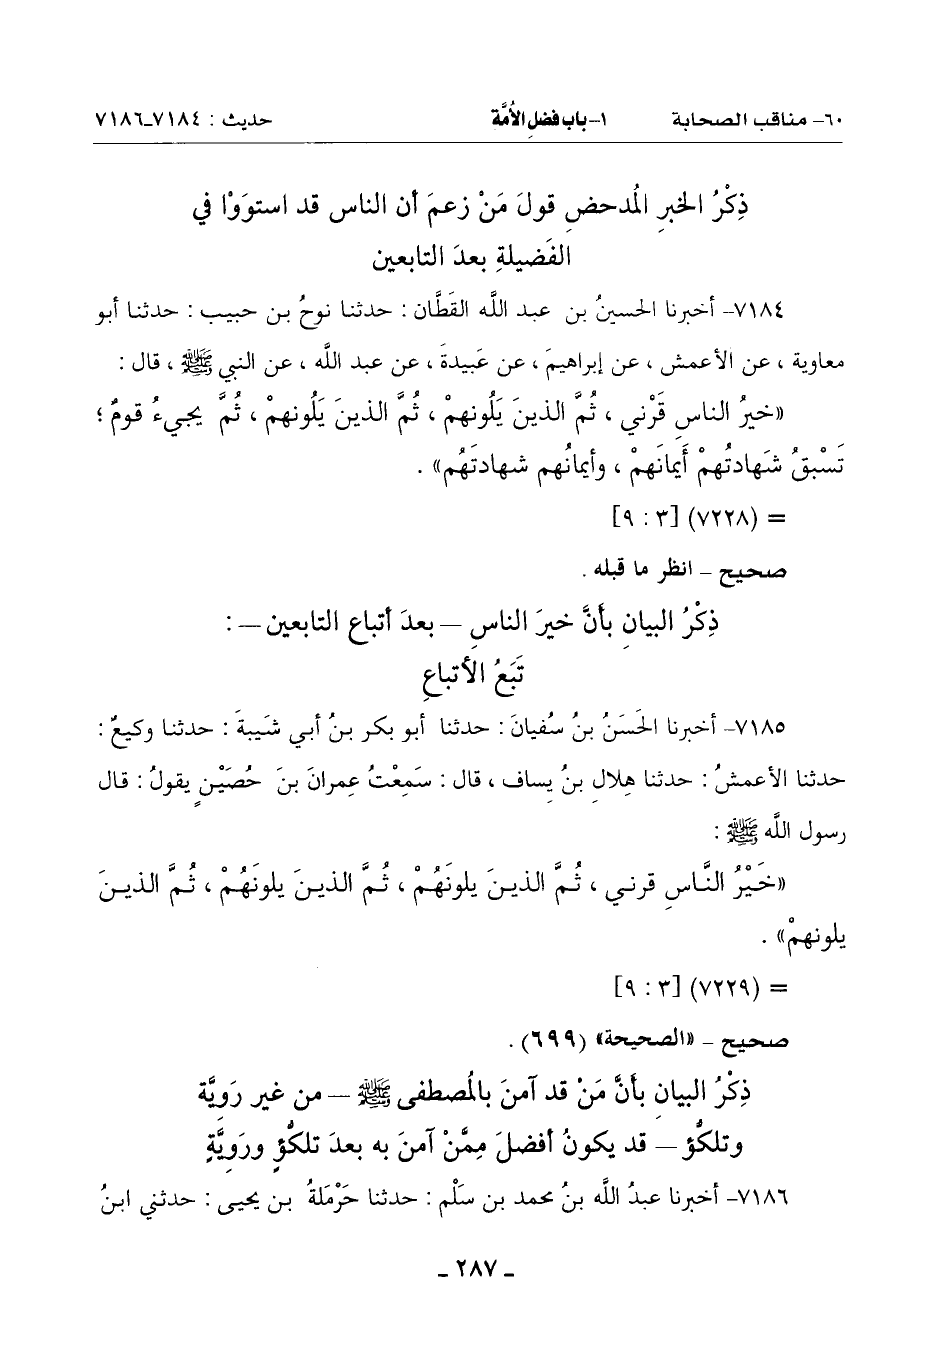 ٦٠- مناقب الصحابة ١- باب فضل الأُمَّة حديث : ٧١٨٤-٧١٨٦
ذِكْرُ الخبرِ المُدحضِ قولَ مَنْ زعمَ أن الناس قد استووْا في
الفَضيلةِ بعدَ التابعين
٧١٨٤- أخبرنا الحسينُ بن عبد اللَّه القَطَّان : حدثنا نوحُ بن حبيب : حدثنا أبو
معاوية ، عن الأعمش ، عن إبراهيمَ ، عن عَبيدةَ ، عن عبد اللَّه ، عن النبي ﷺ ، قال :
«خيرُ الناسِ قَرْني ، ثُمَّ الذينَ يَلُونهمْ ، ثُمَّ الذينَ يَلُونهمْ ، ثُمَّ يجيءُ قومٌ ؛
تَسْبقُ شَهادتُهمْ أَيمانَهمْ ، وأيمانُهم شهادتَهُم» .
= (٧٢٢٨) [٣ : ٩]
صحيح - انظر ما قبله .
ذِكْرُ البيانِ بأنَّ خيرَ الناسِ – بعدَ أتباع التابعين – :
تَبَعُ الأتباعِ
٧١٨٥- أخبرنا الحَسَنُ بنُ سُفيانَ : حدثنا أبو بكر بنُ أبي شَيبةَ : حدثنا وكيعٌ :
حدثنا الأعمشُ : حدثنا هِلال بنُ يِساف ، قال : سَمِعْتُ عِمرانَ بنَ حُصَيْنٍ يقولُ : قال
رسول اللَّه ﷺ :
«خَيْرُ النَّاسِ قرني ، ثُمَّ الذينَ يلونَهُمْ ، ثُمَّ الذينَ يلونَهُمْ ، ثُمَّ الذينَ
يلونهمْ» .
= (٧٢٢٩) [٣ : ٩]
صحيح - «الصحيحة» (٦٩٩) .
ذِكْرُ البيانِ بأنَّ مَنْ قد آمنَ بالمُصطفى ﷺ – من غيرِ رَوِيَّة
وتلكُّؤ – قد يكونُ أفضلَ مِمَّنْ آمنَ به بعدَ تلكُّؤٍ ورَوِيَّةٍ
٧١٨٦- أخبرنا عبدُ اللَّه بنُ محمد بن سَلْم : حدثنا حَرْمَلةُ بن يحيى : حدثني ابنُ
- ٢٨٧ -